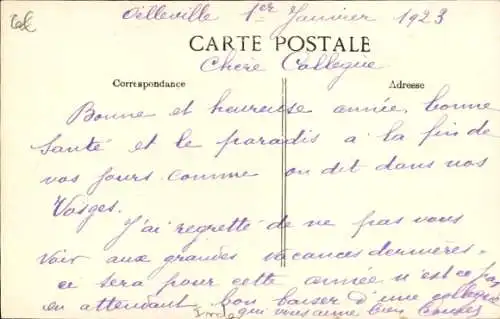 Oëlleville 1er Janvier 1923
CARTE POSTALE
Chère Collègue
Correspondance
Adresse
Bonne et heureuse année, bonne
santé et le paradis à la fin de
vos jours comme on dit dans nos
Vosges.
J'ai regretté de ne pas vous
voir aux grandes vacances dernières.
ce sera pour cette année n'est ce pas
en attendant bon baiser d'une collègue
qui vous aime bien